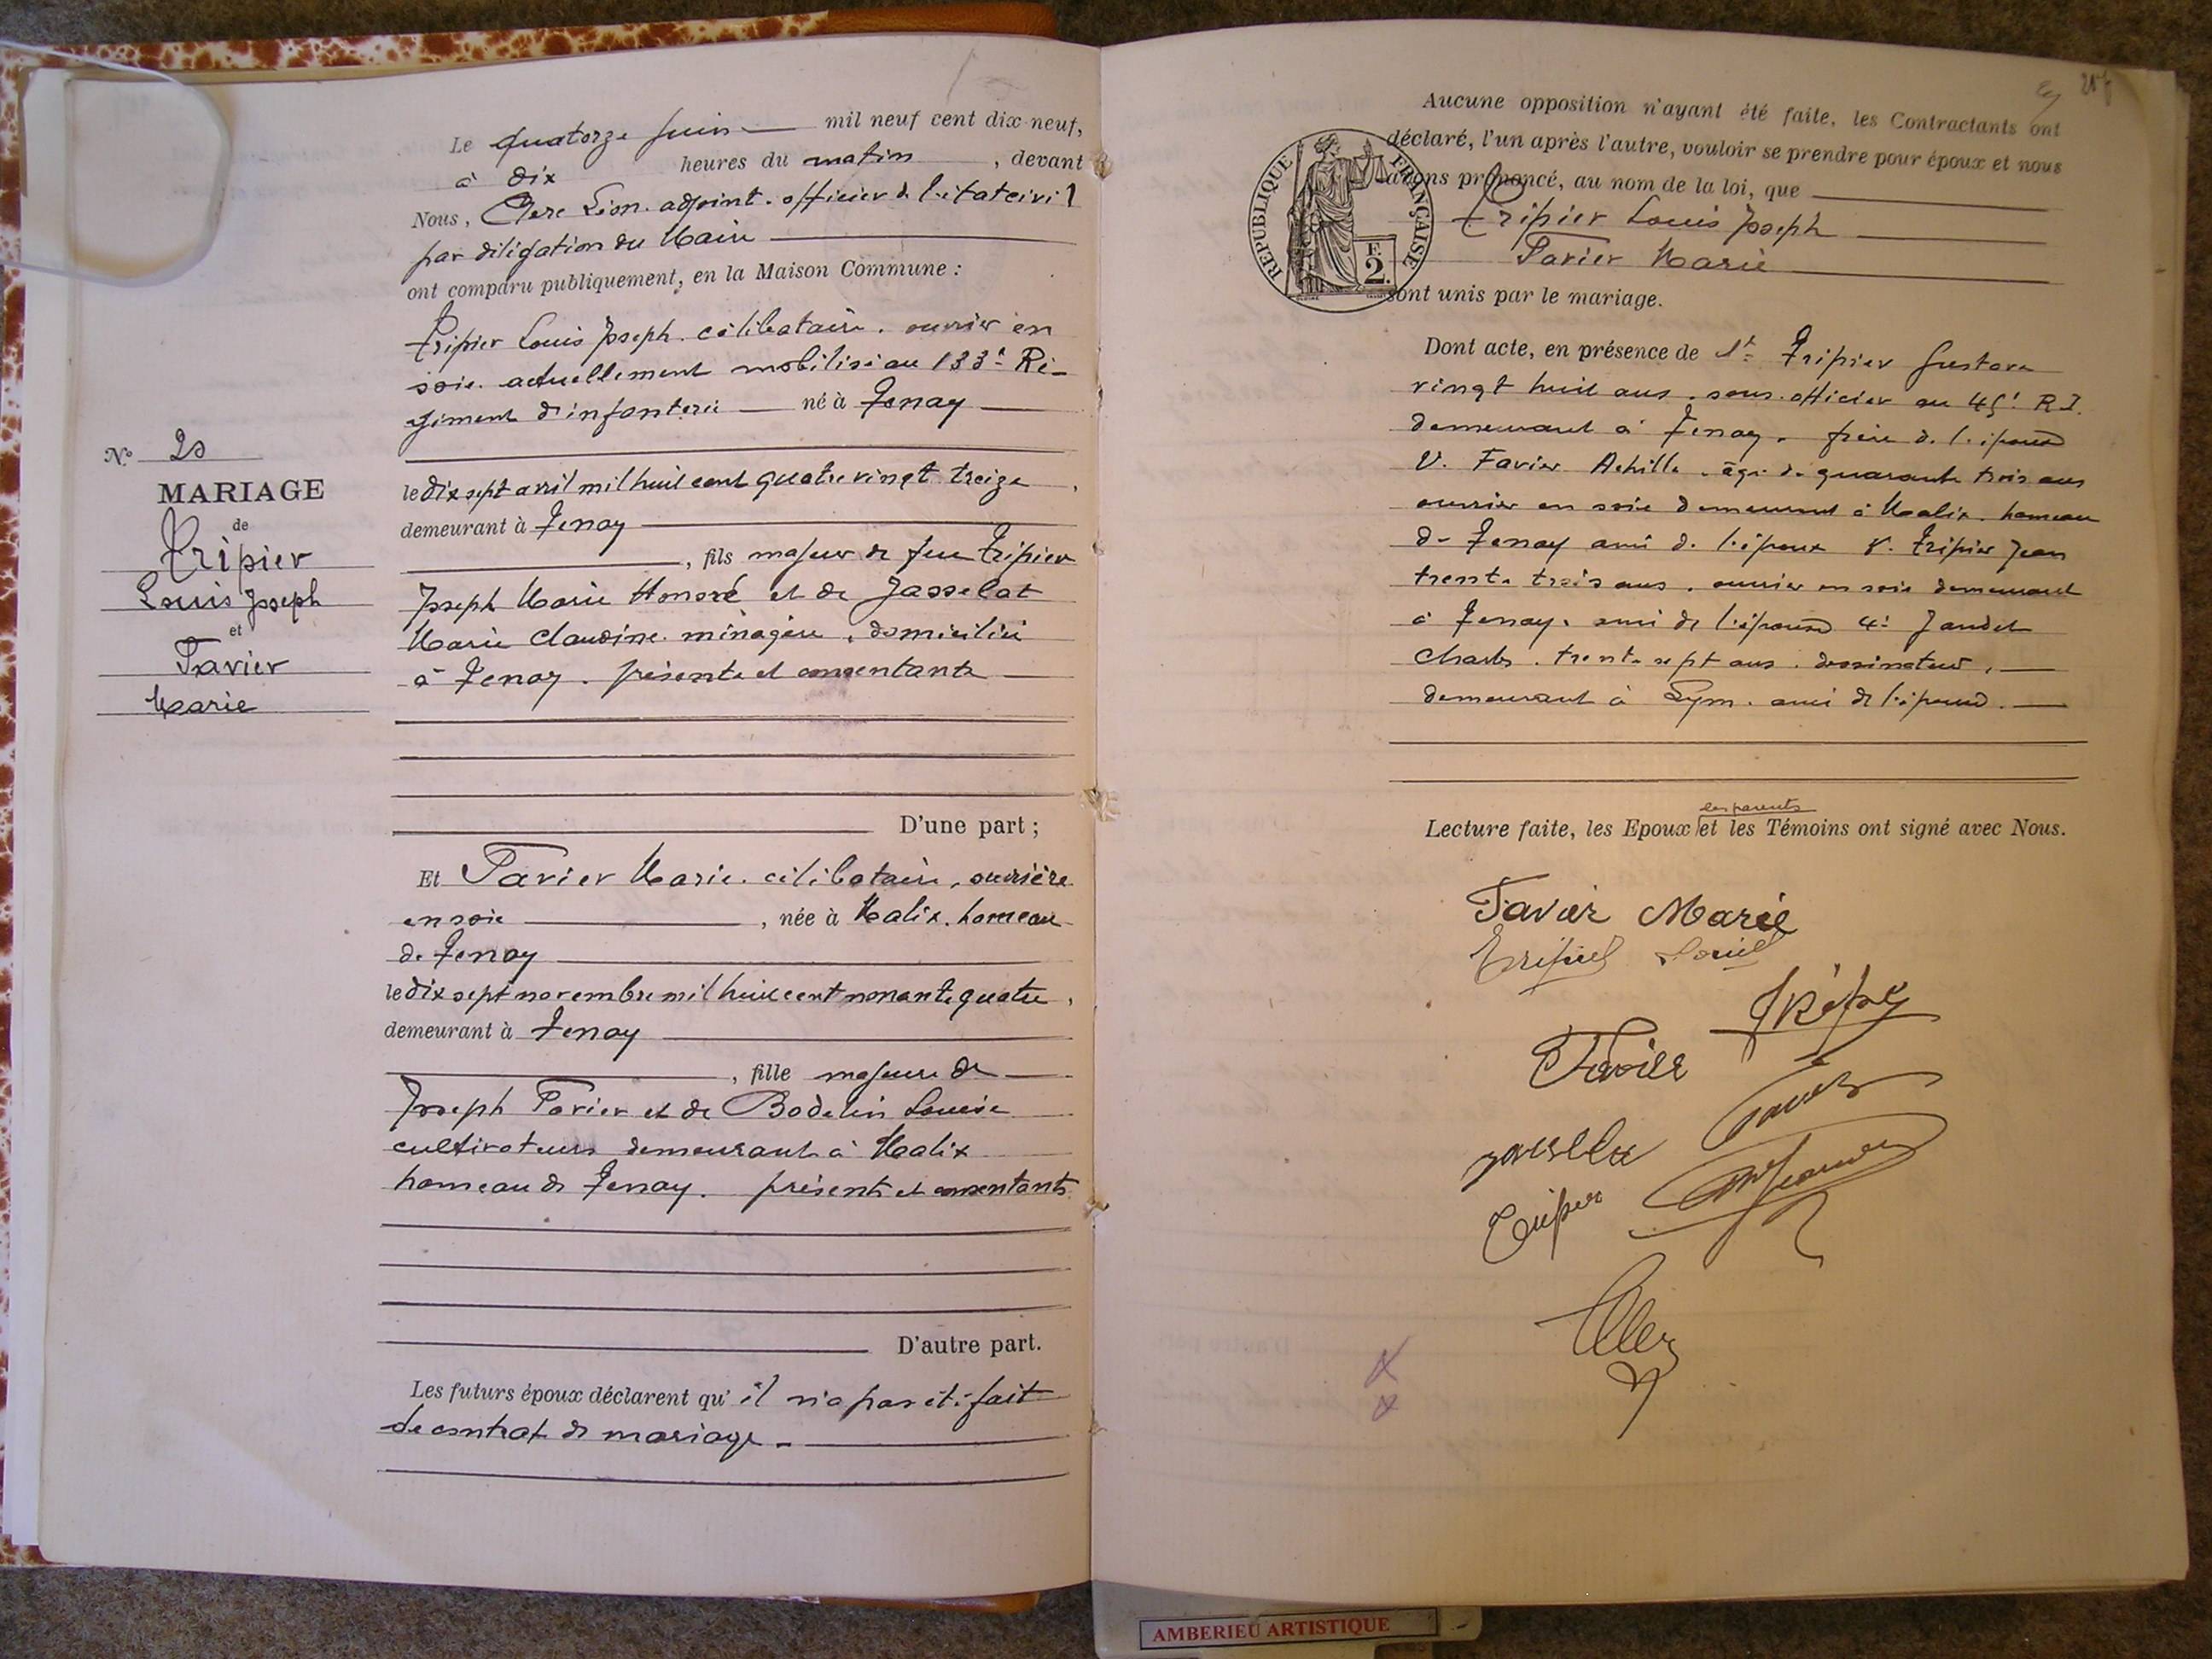 Le quatorze Juin mil neuf cent dix-neuf,
à dix heures du matin, devant
Nous, Léon. adjoint. officier de l'état civil
par délégation du Maire
ont comparu publiquement, en la Maison Commune :
Tripier Louis Joseph. célibataire. ouvrier en
soie. actuellement mobilisé au 133e Ré-
giment d'infanterie né à Tenay
le dix sept avril mil huit cent quatre vingt treize,
demeurant à Tenay
, fils majeur de feu Tripier
Joseph Marie Honoré et de Jasselat
Marie Claudine. ménagère. domiciliée
à Tenay. présente et consentante
D'une part ;
Et Favier Marie. célibataire, ouvrière
en soie, née à Malix. hameau
de Tenay
le dix sept novembre mil huit cent nonante quatre,
demeurant à Tenay
, fille majeure de
Joseph Favier et de Bodelin Louise
cultivateurs demeurant à Malix
hameau de Tenay. présents et consentants
D'autre part.
Les futurs époux déclarent qu'il n'a pas été fait
de contrat de mariage.
No 20
MARIAGE
de
Tripier
Louis Joseph
et
Favier
Marie
Aucune opposition n'ayant été faite, les Contractants ont
déclaré, l'un après l'autre, vouloir se prendre pour époux et nous
avons prononcé, au nom de la loi, que
Tripier Louis Joseph
Favier Marie
sont unis par le mariage.
REPUBLIQUE FRANÇAISE
F.
2.
Dont acte, en présence de Tripier Gustave
vingt huit ans. sous-officier au R.I.
demeurant à Tenay. frère de l'époux
Favier Achille. âgé de quarante trois ans
ouvrier en soie demeurant à Malix. hameau
de Tenay ami de l'époux Tripier Jean
trente trois ans. ouvrier en soie demeurant
à Tenay. ami de l'épouse 4e Jandet
Charles. trente sept ans. dessinateur.
demeurant à Lyon. ami de l'épouse.
les parents
Lecture faite, les Epoux et les Témoins ont signé avec Nous.
Favier Marie
Tripier Louis
Favier
Tripier
AMBERIEU ARTISTIQUE